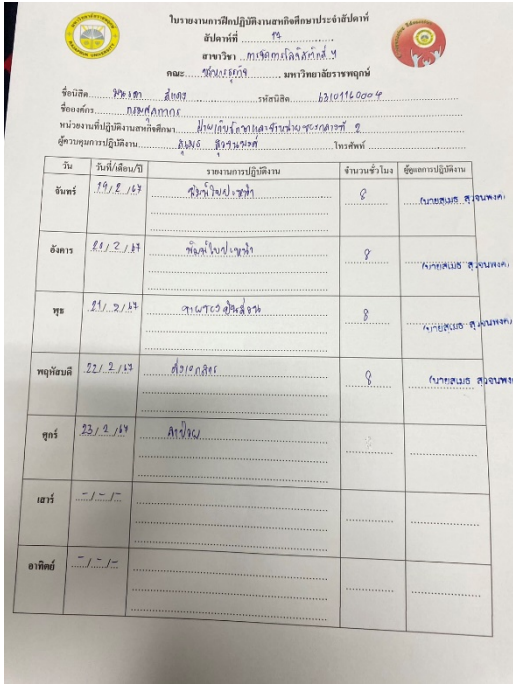 ใบรายงานการฝึกปฏิบัติงานสหกิจศึกษาประจำสัปดาห์
สัปดาห์ที่
สาขาวิชา การจัดการโลจิสติกส์ ฯ
คณะ บริหารธุรกิจ มหาวิทยาลัยราชพฤกษ์
ชื่อนิสิต รหัสนิสิต 63101160004
ชื่อองค์กร กรมศุลกากร
หน่วยงานที่ปฏิบัติงานสหกิจศึกษา
ผู้ควบคุมการปฏิบัติงาน สุเมธ สุวจนพงศ์ โทรศัพท์
วัน วันที่/เดือน/ปี รายงานการปฏิบัติงาน จำนวนชั่วโมง ผู้ดูแลการปฏิบัติงาน
จันทร์ 19/2/67 พิมพ์ใบปะหน้า 8 (นายสุเมธ สุวจนพงศ์
อังคาร 20/2/67 พิมพ์ใบปะหน้า 8 (นายสุเมธ สุวจนพงศ์
พุธ 21/2/67 8 (นายสุเมธ สุวจนพงศ์
พฤหัสบดี 22/2/67 ส่งเอกสาร 8 (นายสุเมธ สุวจนพงศ์
ศุกร์ 23/2/67 ลาป่วย
เสาร์ -/-/-
อาทิตย์ -/-/-